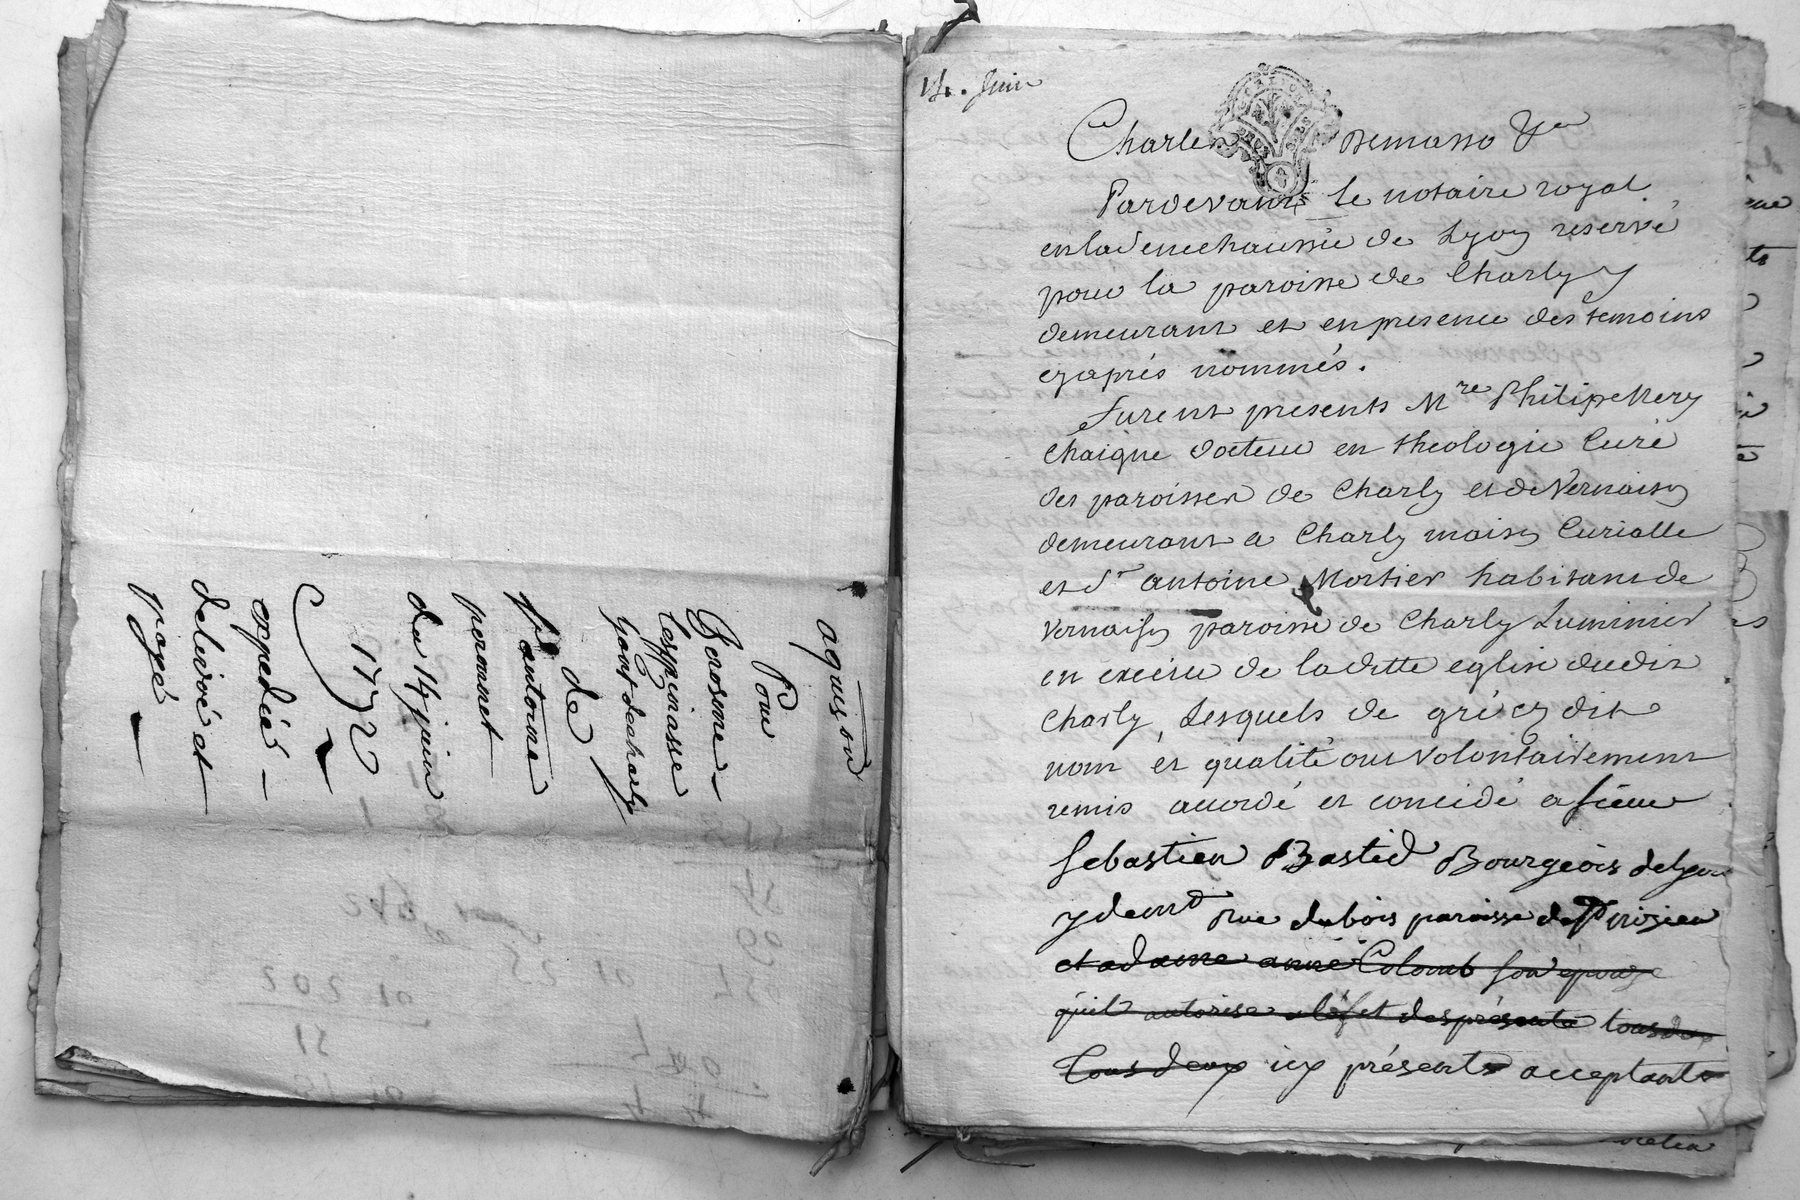 aquis on
Pour
Lespinasse
gaof de charly
de
antoine
permonet
du 14 juin
1772
expedié
delivré et
payé
14. Juin
Charles Demasso
Pardevant Le notaire royal
en la Senechaussée de Lyon reservé
pour la paroisse de Charly y
demeurant et en presence des temoins
cy après nommés.
furent presents Mre Philipe Mery
Chaigne docteur en theologie Curé
des paroisses de Charly et de Vernaison
demeurant a Charly maison Curialle
et Sr antoine Mortier habitant de
Vernaison paroisse de Charly Luminier
en exercice de la ditte eglise dudit
Charly, Lesquels de gré cy dit
nom et qualité ont volontairement
remis accordé et concédé a sieur
Sebastien Bastid Bourgeois de Lyon
y demt rue dubois paroisse de St nizier
et a dame anne Colomb son epouze
qu'il autorise a l'effet des présente tous deux
tous deux icy présents acceptants